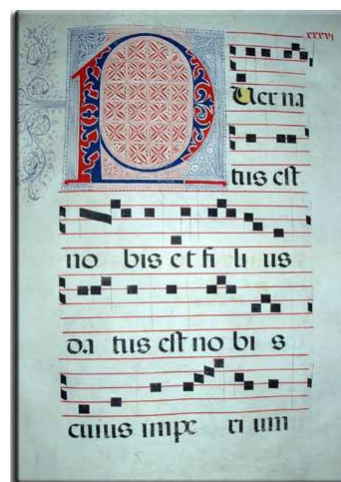 xxxvi
P
Uer na
tus est
no bis et fi li us
da tus est no bi s
cuius impe ri um